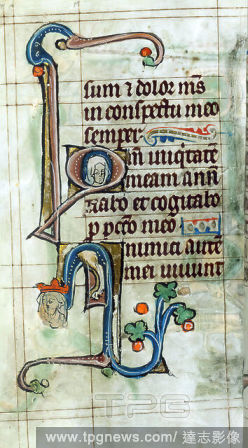 sum ⁊ dolor m̄s
in conspectu meo
semper
Qm̄ iniq̄tatē
meam ann
tiabo et cogitabo
p pctō meo
Inimici autē
mei uiuunt
TPG
www.tpgnews.com/ 達志影像